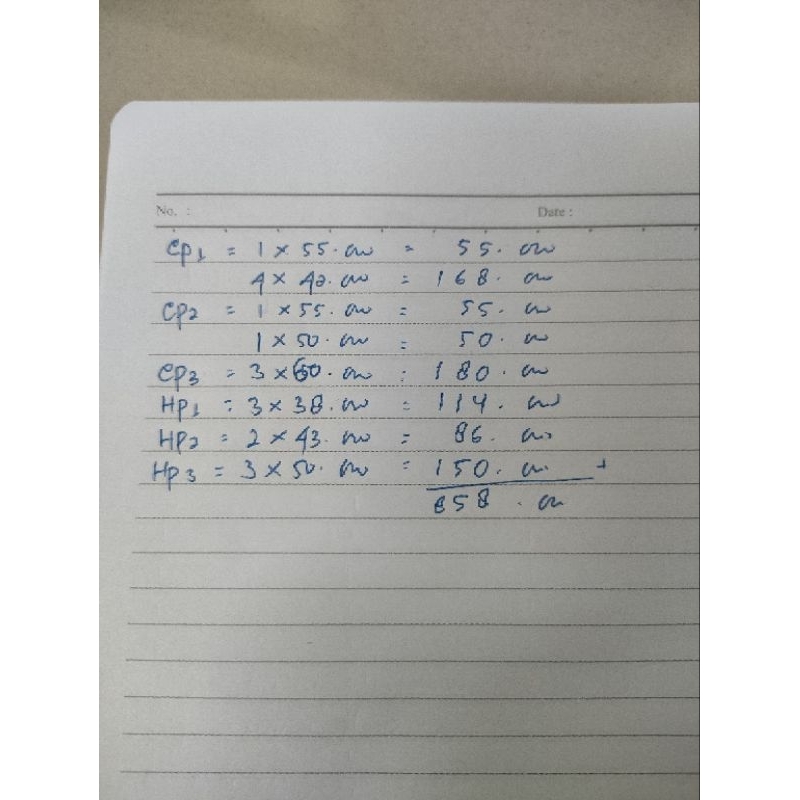 No. : Date :
Cp1 = 1 x 55. cm = 55. cm
4 x 42. cm = 168. cm
Cp2 = 1 x 55. cm = 55. cm
1 x 50. cm = 50. cm
Cp3 = 3 x 60. cm = 180. cm
Hp1 = 3 x 38. cm = 114. cm
Hp2 = 2 x 43. cm = 86. cm
Hp3 = 3 x 50. cm = 150. cm +
858. cm